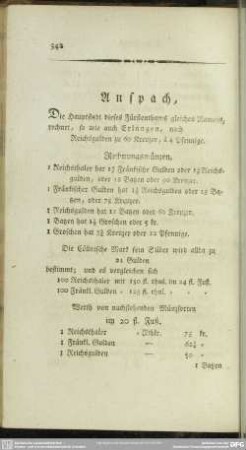 542
Anspach,
Die Hauptstadt dieses Fürstenthums gleichen Namens,
rechnet, so wie auch Erlangen, nach
Reichsgulden zu 60 Kreuzer, à 4 Pfennige.
Rechnungsmünzen,
1 Reichsthaler hat Fränkische Gulden oder 1½ Reichs-
gulden, oder Bazen oder 90 Kreuzer.
1 Fränkischer Gulden hat 1¼ Reichsgulden oder Ba-
zen, oder 75 Kreuzer.
1 Reichsgulden hat 15 Bazen oder 60 Kreuzer.
1 Bazen hat Groschen oder 4 kr.
1 Groschen hat Kreuzer oder Pfennige.
Die Cöllnische Mark fein Silber wird allda zu
21 Gulden
bestimmt; und es vergleichen sich
100 Reichsthaler mit 150 fl. rhnl. im 24 fl. Fuß.
100 Fränkl. Gulden = 125 fl. rhnl. = =
Werth von nachstehenden Münzsorten
im 20 fl. Fuß.
1 Reichsthaler = 75 kr.
1 Fränkl. Gulden = 62½ =
1 Reichsgulden = 50 =
1 Bazen